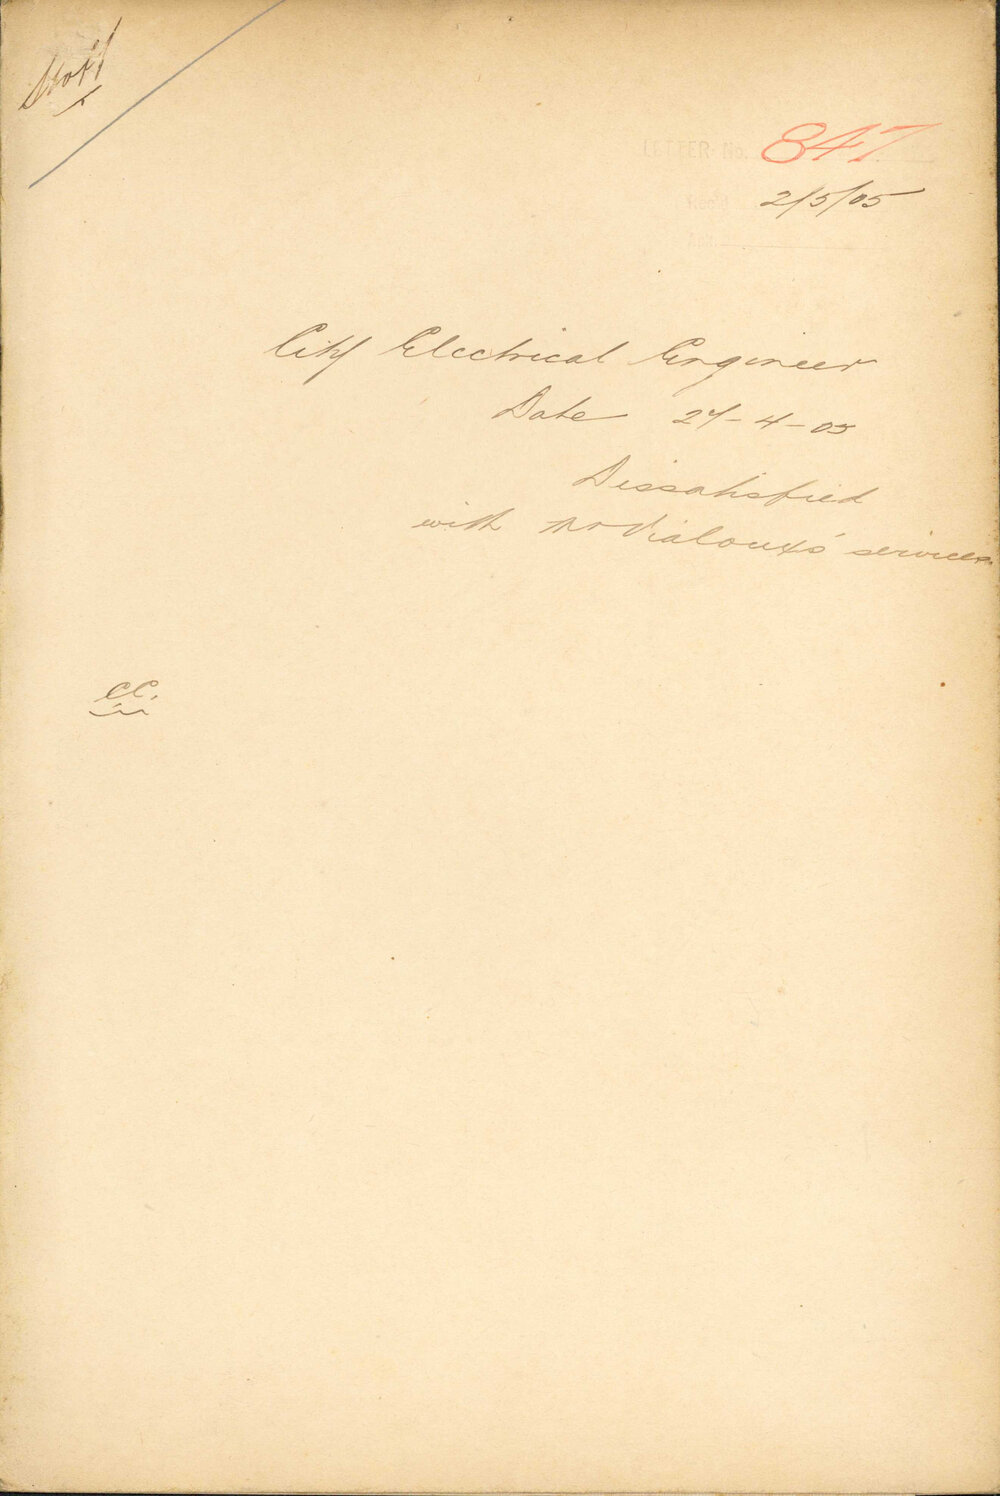 LETTER No. 847
2/5/05
City Electrical Engineer
Date 27-4-05
Dissatisfied
with Mr Vialoux's services
CC.